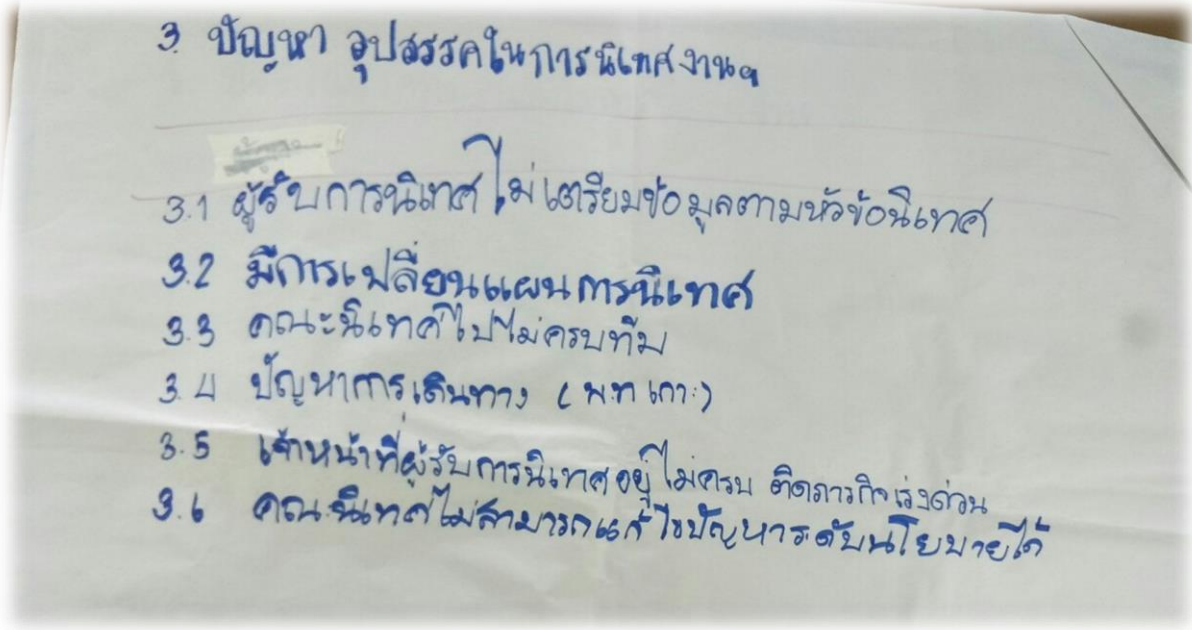 3. ปัญหา อุปสรรคในการนิเทศงานฯ
3.1 ผู้รับการนิเทศไม่เตรียมข้อมูลตามหัวข้อนิเทศ
3.2 มีการเปลี่ยนแผนการนิเทศ
3.3 คณะนิเทศไปไม่ครบทีม
3.4 ปัญหาการเดินทาง (พ.ท เกาะ)
3.5 เจ้าหน้าที่ผู้รับการนิเทศอยู่ไม่ครบ ติดภารกิจเร่งด่วน
3.6 คณะนิเทศไม่สามารถแก้ไขปัญหาระดับนโยบายได้